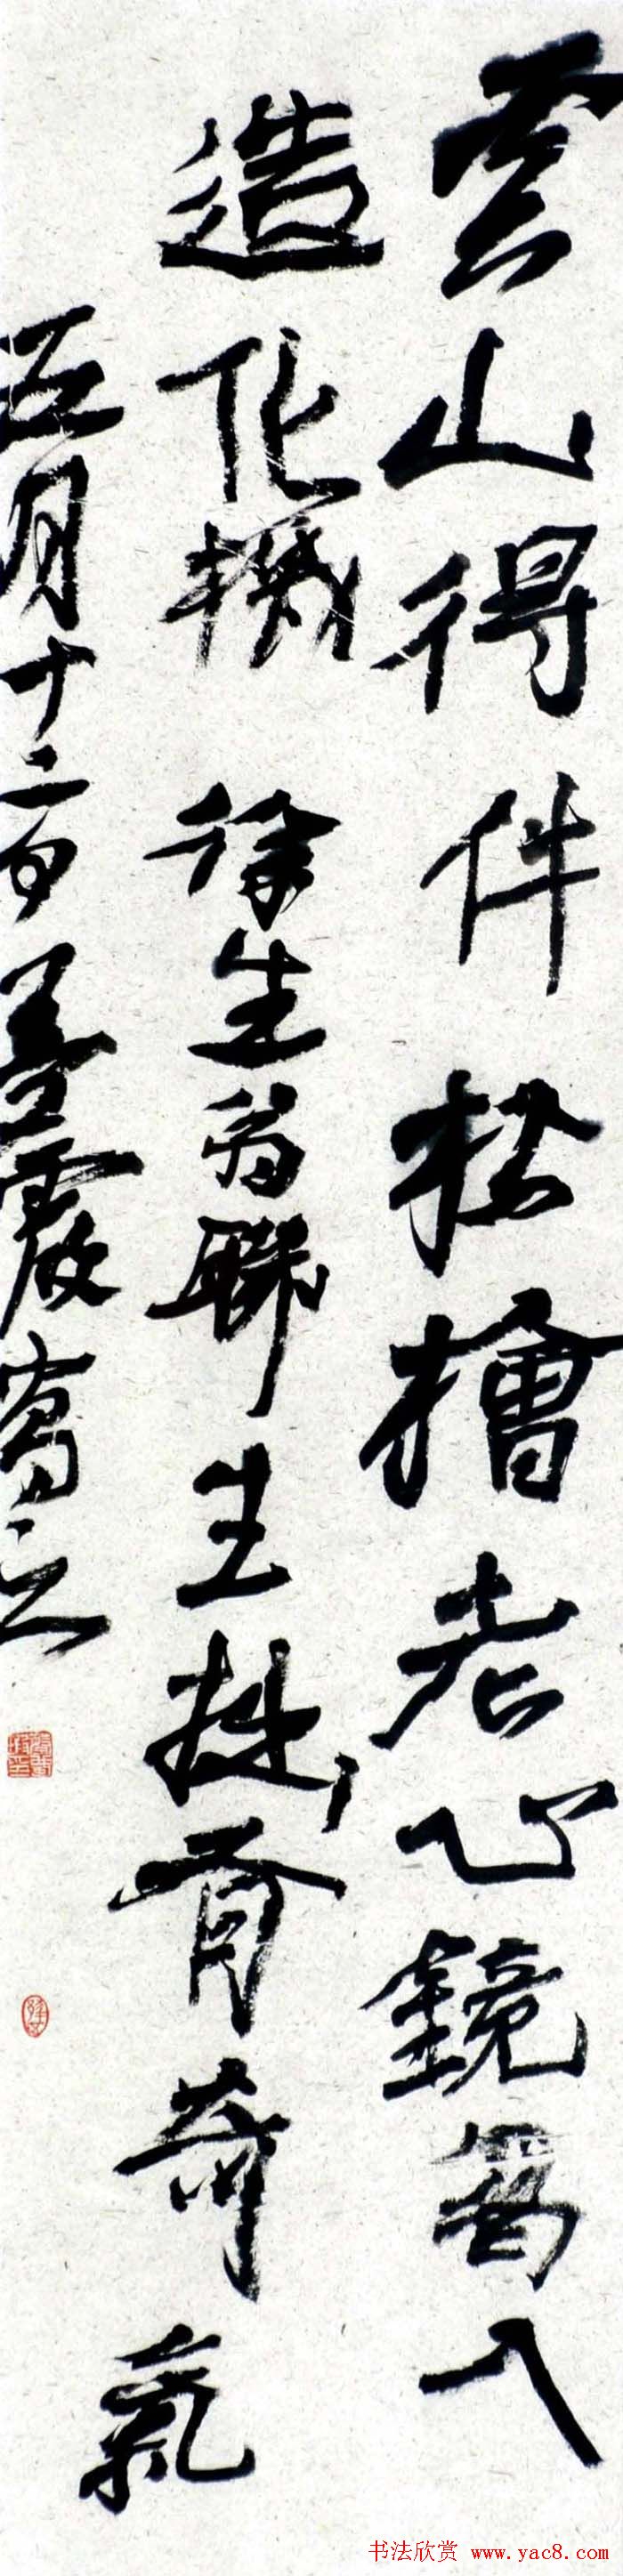 云山得伴松檜老心鏡入
造化機 徐生翁聯生拙有奇氣
五月十二日寫之
书法欣赏 www.yac8.com